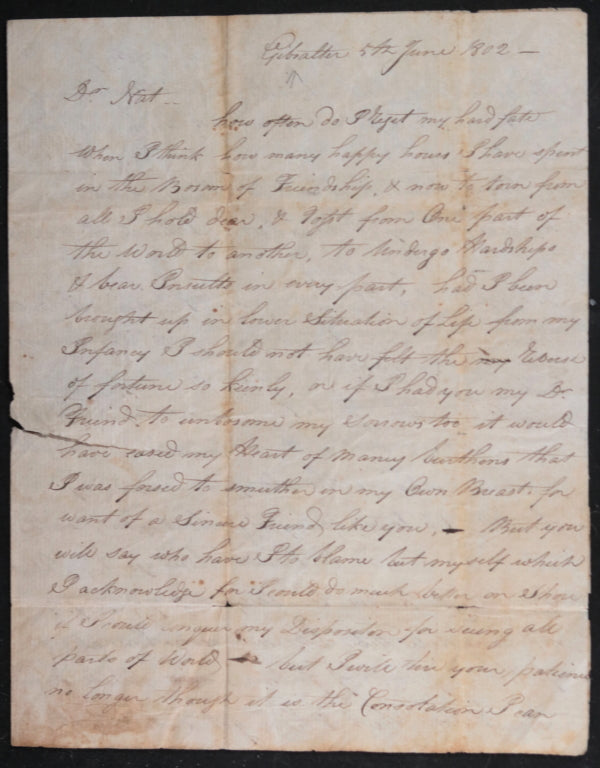 Gibralter 5th June 1802 —
Dr Nat --
how often do I Regit my hard fate
When I think how many happy hours I have spent
in the Bosom of Friendship, & now to torn from
all I hold dear, & Tost from One part of
the World to another, to Undergo Hardships
& bear Insults in every part, had I been
brought up in lower Situation of Life from my
Infancy I should not have felt the my Reverse
of fortune so keenly, or if I had you my Dr
Friend to unbosome my sorrows too it would
have eased my Heart of maney burthens that
I was forsed to smuther in my Own Breast for
want of a Sincere Friend like you, — But you
will say who have I to blame but myself which
I acknowledge for I could do much better on Shore
if I could conquer my Disposition for seeing all
parts of World — but I will tire your patience
no longer though it is the Consolation I can